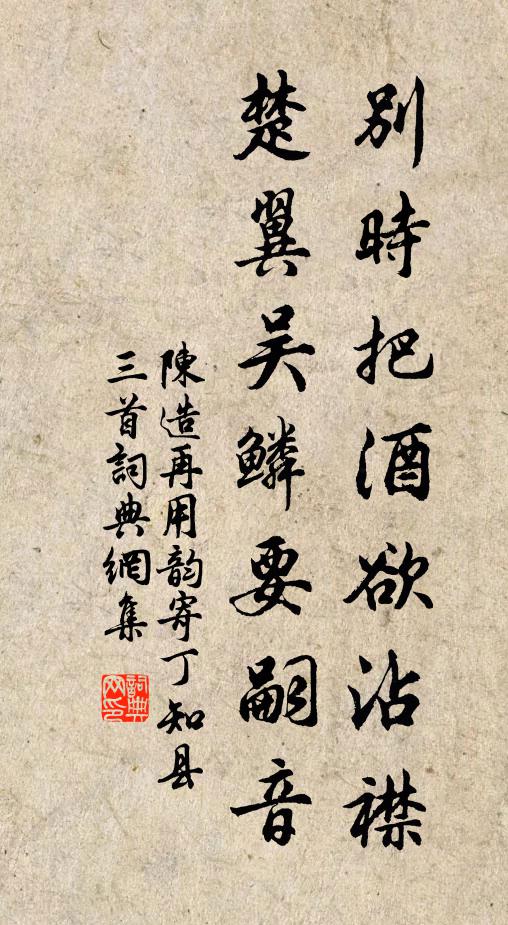 別時把酒欲沾襟
楚翼吴鳞要嗣音
陳造再用韵寄丁知县
三首詞典網集
詞典网印